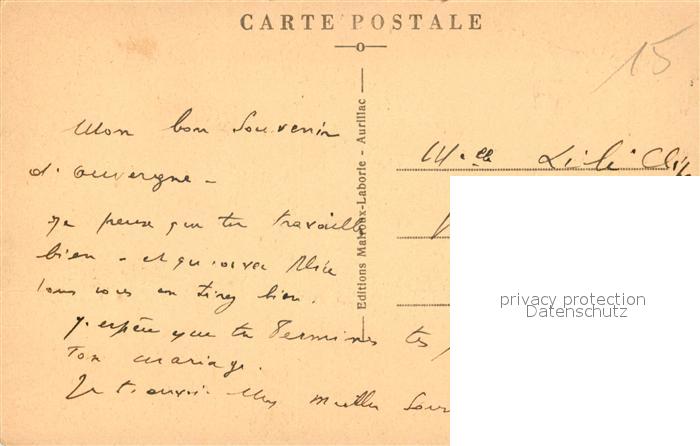 CARTE POSTALE
15
Mon bon Souvenir
d'auvergne -
Je pense que tu travailles
bien - et qu'avec Alice
vous vous en tirez bien.
J'espère que tu termines tes
Ton mariage.
Je t'envoie Mes meilleurs Sou
Editions Malroux-Laborie - Aurillac
Melle Lili
privacy protection
Datenschutz